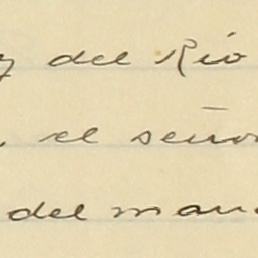 y del Río
el señor
del man